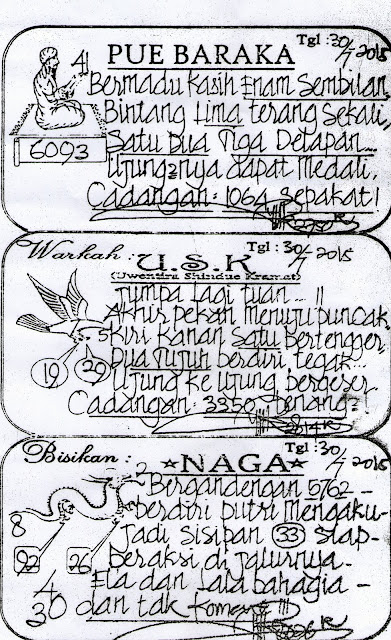 PUE BARAKA
Tgl : 30/7 2015
41
6093
Bermadu kasih Enam Sembilan
Bintang Lima terang sekali,
Satu Dua Tiga Delapan...
Ujung2nya dapat Medali,
Cadangan : 1064 sepakat!
Warkah :
U.S.K
Tgl : 30/7 2015
(Uwentira Shindue Kramat)
Jumpa lagi tuan... !!
Akhir pekan menuju puncak
Kiri kanan satu bertengger
Dua Tujuh berdiri tegak...
Ujung ke ujung bergeser.
Cadangan : 3350 tenang2
5
19
29
Bisikan :
NAGA
Tgl : 30/7 2015
2
Bergandengan 5762 -
berdiri putri mengaku-
Jadi sisipan 33 siap-
beraksi di jalurnya-
Ela dan Lala bahagia -
dan tak
8
92
26
4
30